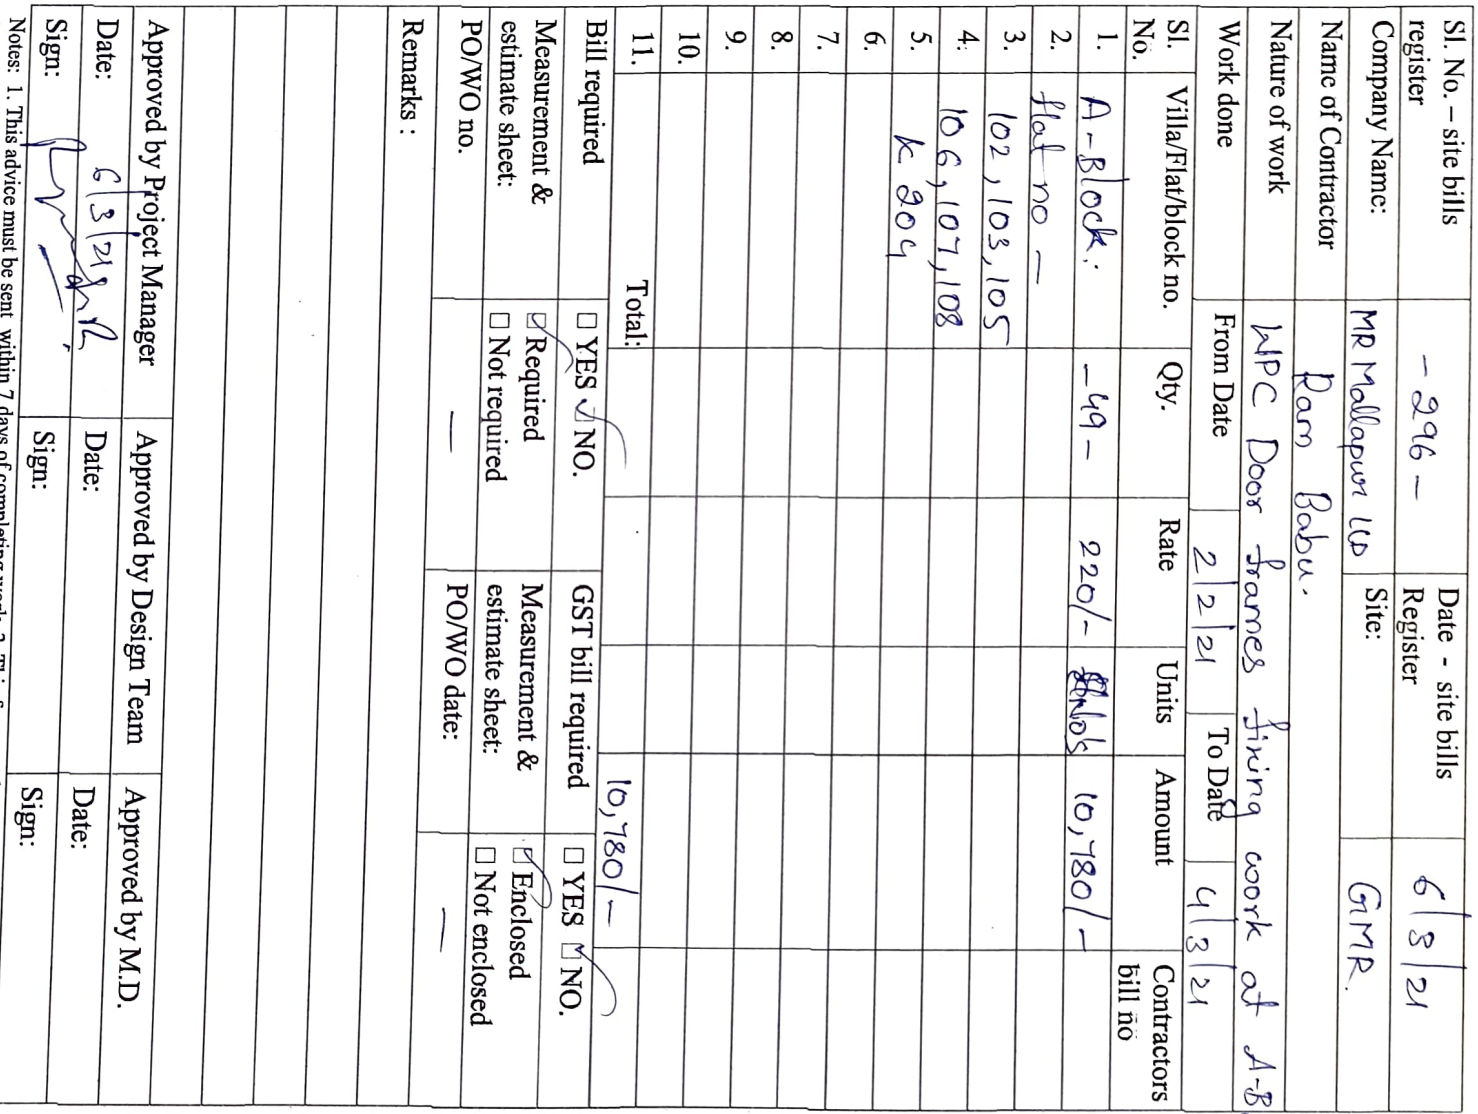 Sl. No. – site bills register - 296 - Date - site bills Register 6/3/21
Company Name: MR Mallapur LLP Site: GMR.
Name of Contractor Ram Babu.
Nature of work WPC Door frames fixing work at A-B
Work done From Date 2/2/21 To Date 4/3/21
Sl. No. Villa/Flat/block no. Qty. Rate Units Amount Contractors bill no
1. A-Block: -49- 220/- No's 10,780/-
2. flat no -
3. 102, 103, 105
4. 106, 107, 108
5. & 204
6.
7.
8.
9.
10.
11. Total: 10,780/-
Bill required ☐ YES ☑ NO. GST bill required ☐ YES ☑ NO.
Measurement & estimate sheet: ☑ Required ☐ Not required Measurement & estimate sheet: ☑ Enclosed ☐ Not enclosed
PO/WO no. — PO/WO date: —
Remarks :
Approved by Project Manager Approved by Design Team Approved by M.D.
Date: 6/3/21 Date: Date:
Sign: Sign: Sign:
Notes: 1. This advice must be sent within 7 days of completing work. 2. This